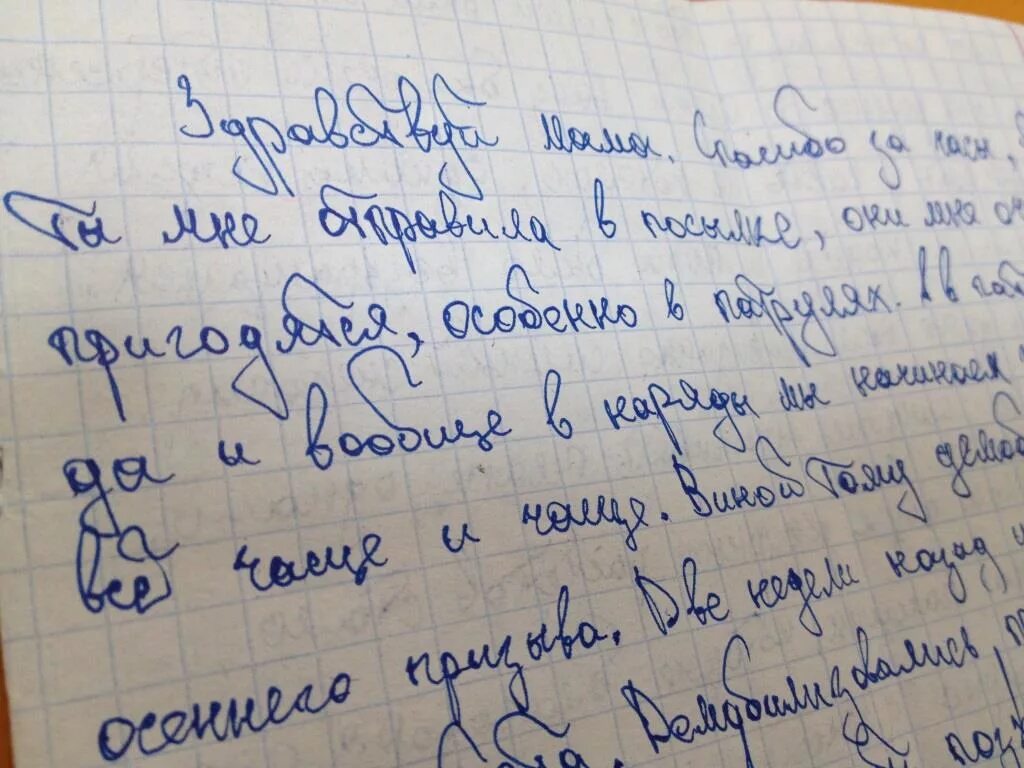 Здравствуй Мама. Спасибо за часы,
Ты мне отправила в посылке, они мне
пригодятся, особенно в патрулях. А в
да и вообще в наряды мы начинаем
все чаще и чаще. Виной тому
осеннего призыва. Две недели назад
Демобилизовались